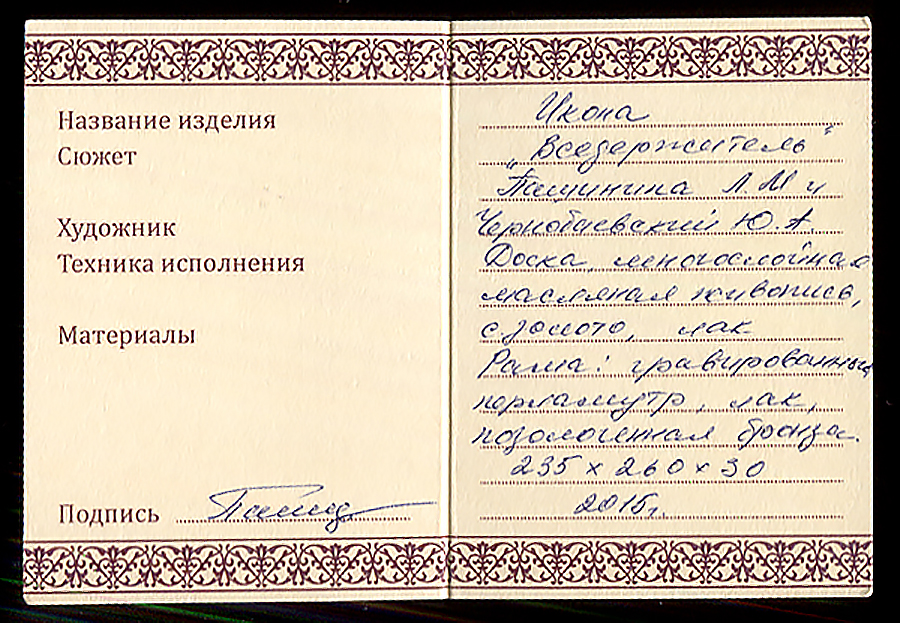 Название изделия
Сюжет
Художник
Техника исполнения
Материалы
Подпись
Икона
"Вседержитель"
Пашинина Л.М и
Чернобаевский Ю.А.
Доска, многослойная
масляная живопись,
с.золото, лак
Рама: гравированный
перламутр, лак,
позолоченная бронза.
235 x 260 x 30
2015г.